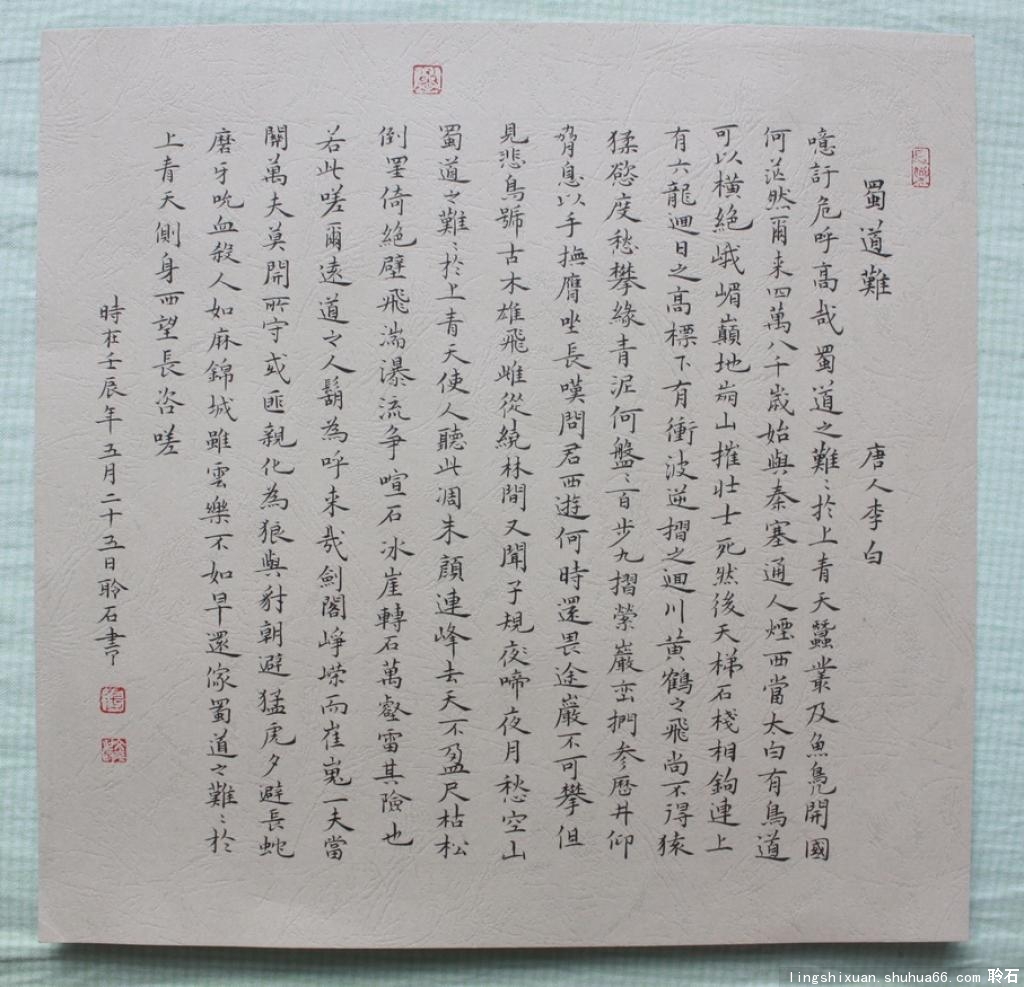 蜀道難 唐人李白
噫訏危呼高哉蜀道之難〻於上青天蠶叢及魚鳧開國
何茫然爾来四萬八千歲始與秦塞通人煙西當太白有鳥道
可以橫絕峨嵋巔地崩山摧壯士死然後天梯石棧相鉤連上
有六龍迴日之高標下有衝波逆摺之迴川黃鶴之飛尚不得猿
猱慾度愁攀緣青泥何盤〻百步九摺縈巖巒捫参歷井仰
脅息以手撫膺坐長嘆問君西遊何時還畏途巖不可攀但
見悲鳥號古木雄飛雌從繞林間又聞子規夜啼夜月愁空山
蜀道之難〻於上青天使人聽此凋朱顏連峰去天不盈尺枯松
倒罣倚絕壁飛湍瀑流争喧石冰崖轉石萬壑雷其險也
若此嗟爾遠道之人鬍為呼来哉劍閣崢嶸而崔嵬一夫當
關萬夫莫開所守或匪親化為狼與豺朝避猛虎夕避長蛇
磨牙吮血殺人如麻錦城雖雲樂不如早還傢蜀道之難〻於
上青天側身西望長咨嗟
時在壬辰年五月二十五日聆石書
lingshixuan.shuhua66.com 聆石